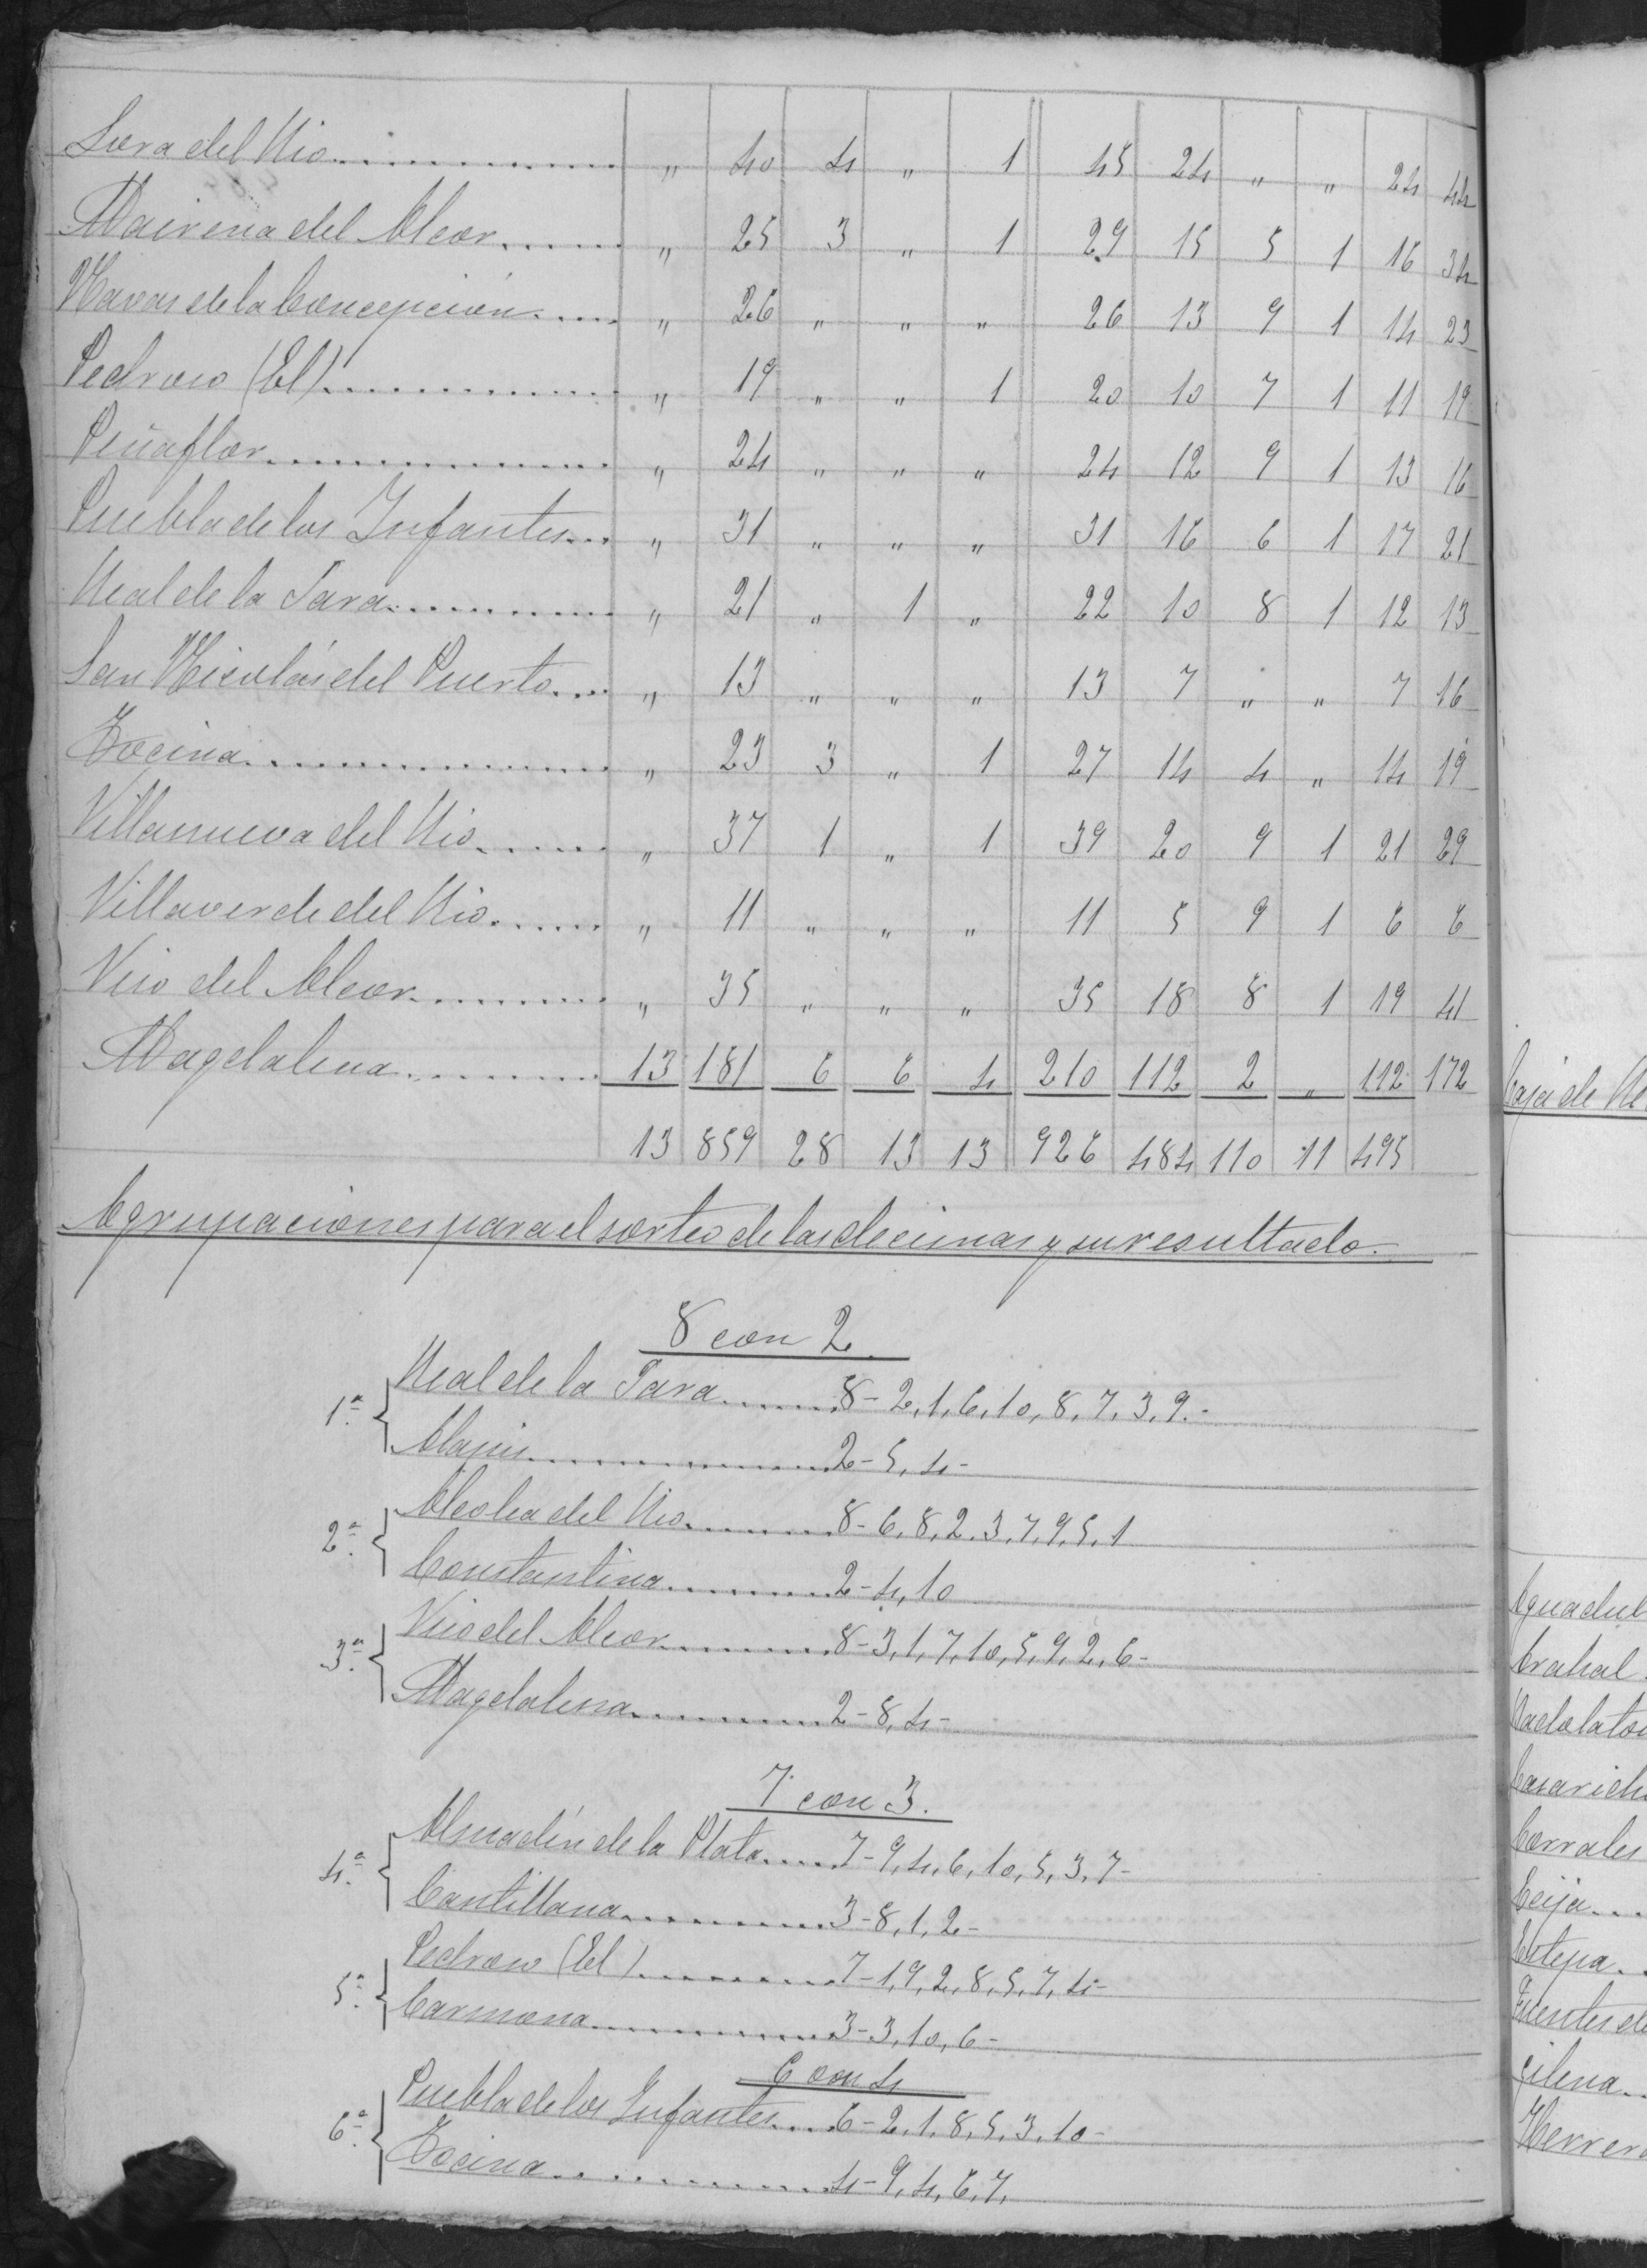 Lora del Rio............... " 40 4 " 1 45 24 " " 24 44
Mairena del Alcor....... " 25 3 " 1 29 15 5 1 16 34
Navas de la Concepción..... " 26 " " " 26 13 9 1 14 23
Pedroso (El)............... " 19 " " 1 20 10 7 1 11 19
Peñaflor.................. " 24 " " " 24 12 9 1 13 16
Puebla de los Infantes... " 31 " " " 31 16 6 1 17 21
Real de la Jara............ " 21 " 1 " 22 10 8 1 12 13
San Nicolás del Puerto.... " 13 " " " 13 7 " " 7 16
Tocina................... " 23 3 " 1 27 14 4 " 14 19
Villanueva del Rio....... " 37 1 " 1 39 20 9 1 21 29
Villaverde del Rio....... " 11 " " " 11 5 9 1 6 6
Viso del Alcor.......... " 35 " " " 35 18 8 1 19 41
Magdalena.......... 13 181 6 6 4 210 112 2 " 112 172
13 859 28 13 13 926 484 110 11 495
Agrupaciones para el sorteo de las decimas y su resultado.
8 con 2.
1ª Real de la Jara....... 8-2,1,6,10,8,7,3,9.-
Alanis................ 2-5,4-
2ª Alcolea del Rio......... 8-6,8,2,3,7,9,5,1
Constantina.......... 2-4,10
3ª Viso del Alcor.......... 8-3,1,7,10,5,9,2,6-
Magdalena........... 2-8,4-
7 con 3.
4ª Almadén de la Plata..... 7-9,4,6,10,5,3,7-
Cantillana........... 3-8,1,2-
5ª Pedroso (El)........... 7-1,9,2,8,5,7,4-
Carmona............. 3-3,10,6-
6 con 4
6ª Puebla de los Infantes.... 6-2,1,8,5,3,10-
Tocina............... 4-9,4,6,7.
Caja de
Arahal
Corrales
Ecija...
Estepa..
Fuentes de
Gilena..